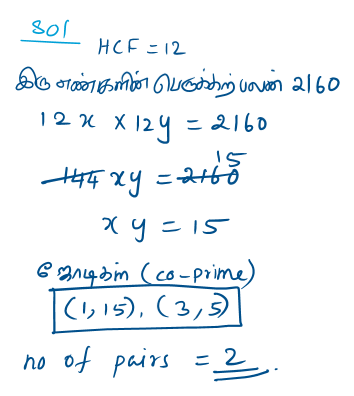 sol
HCF = 12
இரு எண்களின் பெருக்கற்பலன் 2160
12x × 12y = 2160
144 xy = 2160 15
xy = 15
ஜோடிகள் (co-prime)
(1, 15), (3, 5)
no of pairs = 2.